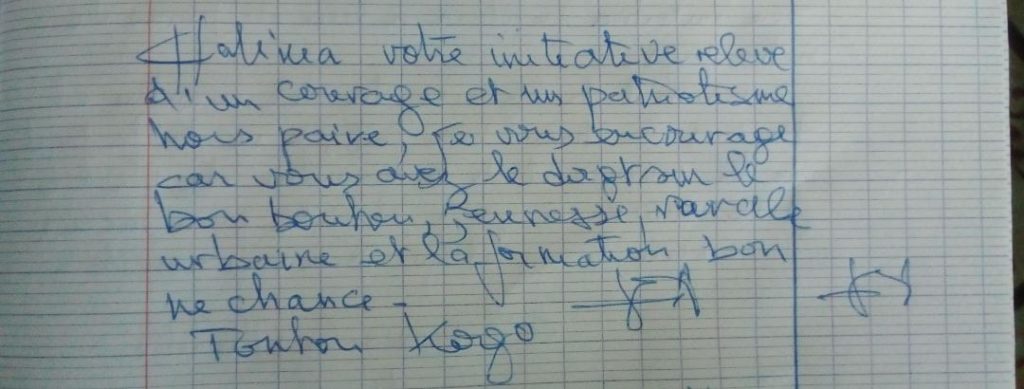 Halima votre initiative releve
d'un courage et un patriotisme
hors paire, Je vous encourage
car vous avez le doigt sur le
bon bouton, Jeunesse, rurale
urbaine et la formation bon
ne chance -
Touhou Kogo